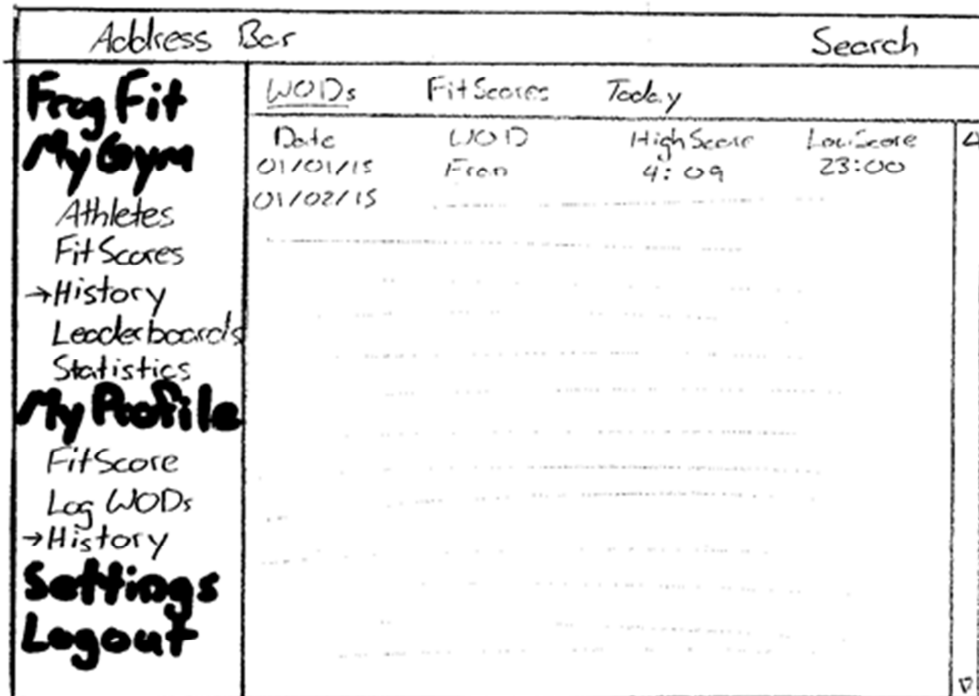 Address Bar Search
Frog Fit
My Gym
Athletes
FitScores
→History
Leaderboards
Statistics
My Profile
FitScore
Log WODs
→History
Settings
Logout
WODs FitScores Today
Date WOD HighScore LowScore
01/01/15 Fran 4:09 23:00
01/02/15